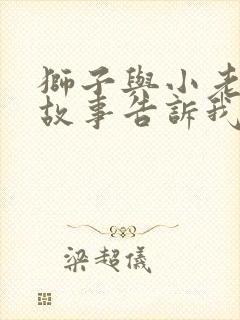 獅子與小老
故事告訴我
梁超儀